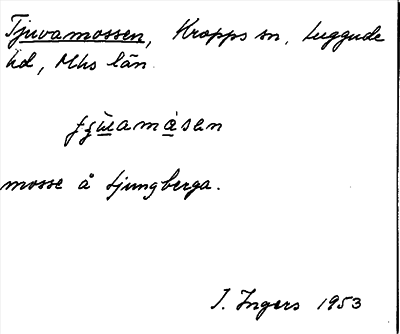 Tjuvamossen, Kropps sn, Luggude
hd, Mhs län.
mosse å Ljungberga.
I. Ingers 1953